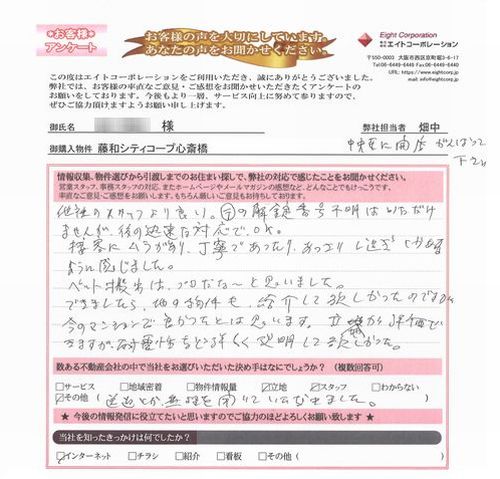 お客様
アンケート
お客様の声を大切にしています。
あなたの声をお聞かせください。
Eight Corporation
株式会社エイトコーポレーション
〒550-0003 大阪市西区京町堀3-6-17
Tel:06-6449-6445 Fax:06-6449-6440
URL: https://www.eightcorp.jp
mail: info@eightcorp.jp
この度はエイトコーポレーションをご利用いただき、誠にありがとうございました。
弊社では、お客様の率直なご意見・ご感想をお聞かせいただきたくアンケートの
お願いをしております。今後もより一層、サービス向上に努めて参りますので、
ぜひご協力頂けますようお願い申し上げます。
御氏名 様
弊社担当者 畑中
御購入物件 藤和シティコープ心斎橋
がんばって
下さい
情報収集、物件選びから引渡しまでのお住まい探しで、弊社の対応で感じたことをお聞かせください。
営業スタッフ、事務スタッフの対応、またホームページやメールマガジンの感想など、どんなことでもけっこうです。
率直なご意見・ご感想をお願いします。もちろん厳しいご意見もお待ちしております。
他社のスタッフより良い。の解錠番号不明はいただけ
ませんが、後の迅速な対応でOK。
接客にムラがあり、丁寧であったり、あっさりし過ぎ
ように感じました。
は、プロだな〜と思いました。
できましたら、他の物件も、紹介して欲しかったのですが
今のマンションで良かったとは思います。立
ますが、耐震性など詳しく説明して欲しかった。
数ある不動産会社の中で当社をお選びいただいた決め手はなにでしょうか？（複数回答可）
□サービス □地域密着 □物件情報量 ☑立地 ☑スタッフ □わからない
☑その他（ ）
★ 今後の情報発信に役立てたいと思いますのでご協力のほどよろしくお願い致します ★
当社を知ったきっかけは何でしたか？
☑インターネット □チラシ □紹介 □看板 □その他（ ）